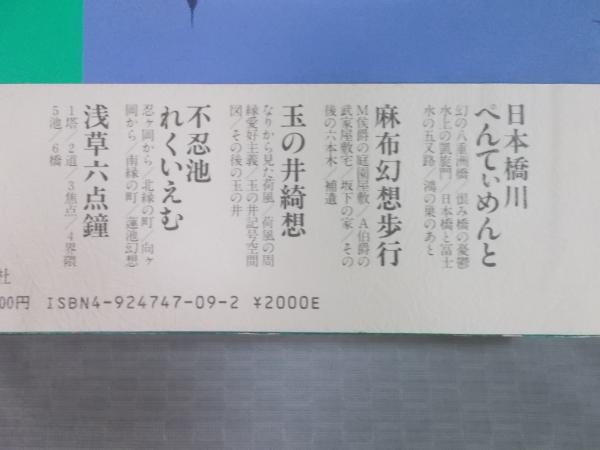 日本橋川
ぺんてぃめんと
幻の八重洲橋/恨み橋の憂鬱
水上の凱旋門/日本橋と富士
水の五叉路/鴻の巣のあと
麻布幻想歩行
M侯爵の庭園屋敷/A伯爵の
武家屋敷宅/坂下の家/その
後の六本木/補遺
玉の井綺想
なりから見た荷風/荷風の周
縁愛好主義/玉の井記号空間
図/その後の玉の井
不忍池
れくいえむ
忍ヶ岡から/北縁の町/向ヶ
岡から/南縁の町/蓮池幻想
浅草六点鐘
1塔/2道/3焦点/4界隈
5池/6橋
社
00円 ISBN4-924747-09-2 ¥2000E